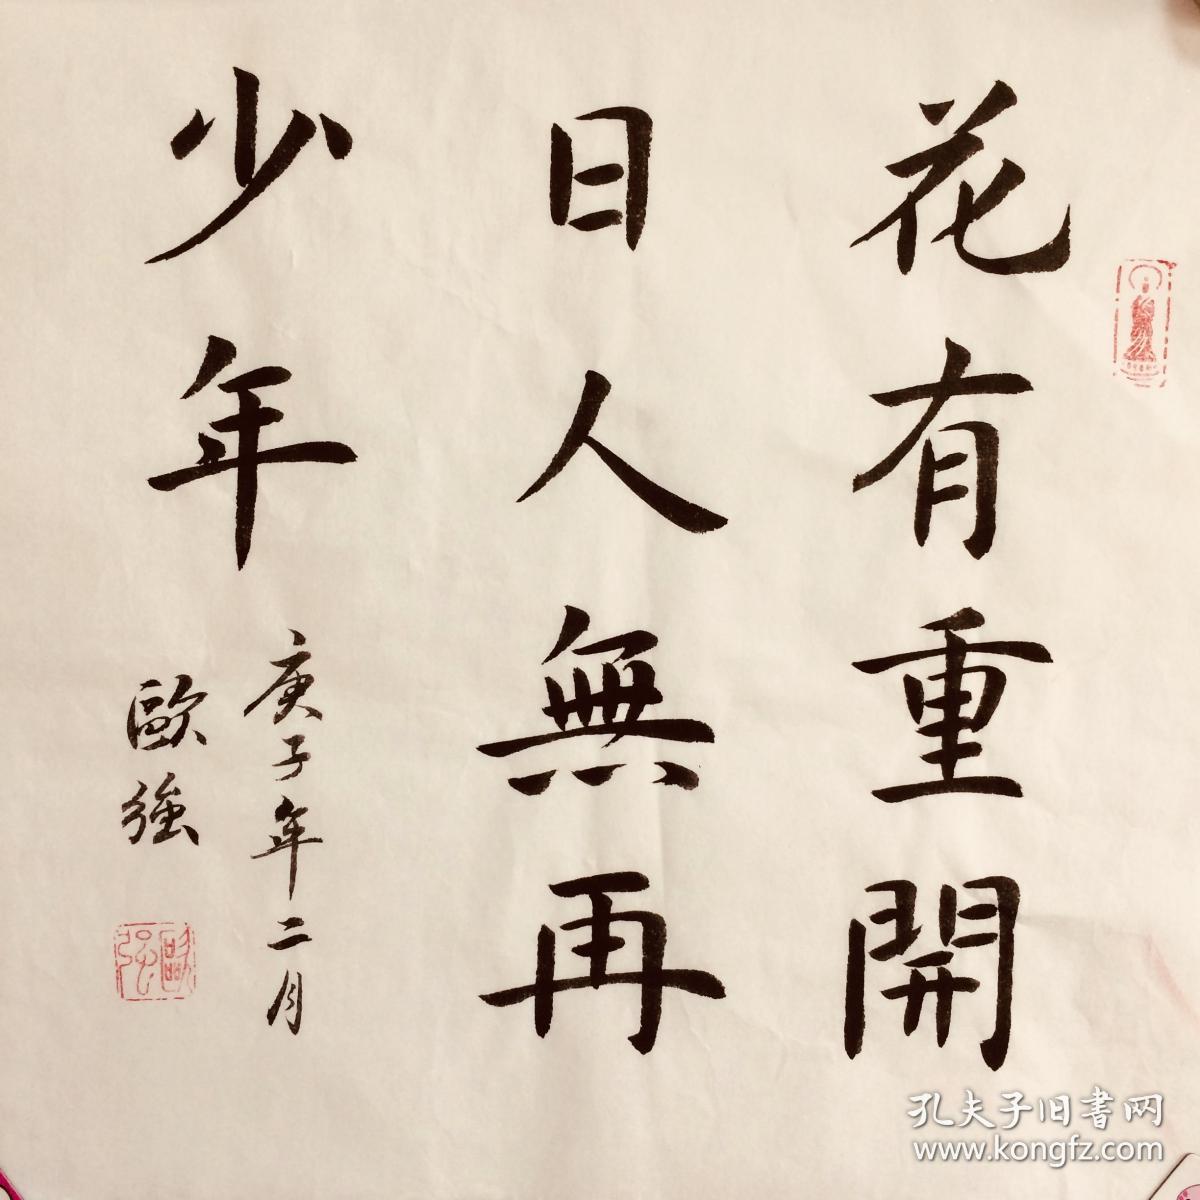 花有重開
日人無再
少年
庚子年二月
歐強
歐強
孔夫子旧書网
www.kongfz.com